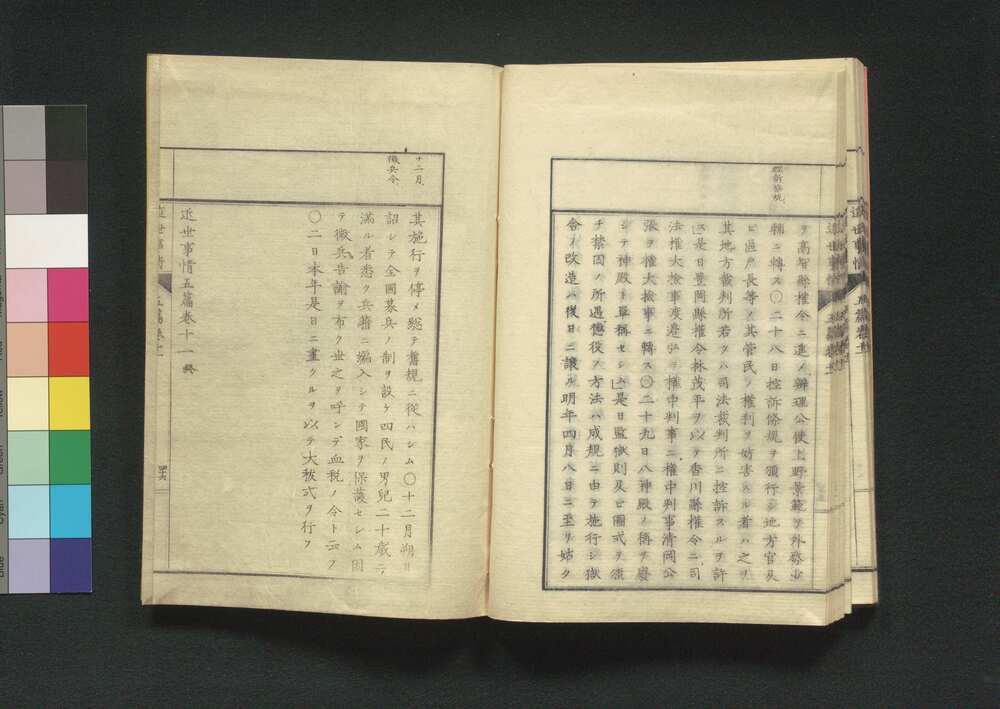 ヲ高智縣權令ニ進メ辨理公使上野景範ヲ外務少
輔ニ轉ス〇二十八日控訴條規ヲ頒行シ地方官及
ヒ區戸長等ノ其管民ノ權利ヲ妨害スル者ハ之ヲ
其地方裁判所若クハ司法裁判所ニ控訴スルヲ許
ス是日豊岡縣權令林茂平ヲ以テ香川縣權令ニ司
法權大檢事渡邉ヲ權中判事ニ權中判事清岡公
張ヲ權大檢事ニ轉ス〇二十九日八神殿ノ稱ヲ廢
シテ神殿ト單稱セシム是日監獄則及ヒ圖式ヲ
チ禁囚ノ所遇懲役ノ方法ハ成規ニ由テ施行シ獄
舎ノ改造ハ後日ニ讓ル明年四月八日ニ至リ姑ク
十二月
徴兵令
其施行ヲ停メ總テ舊規ニ從ハシム〇十二月朔日
詔シテ全國募兵ノ制ヲ設ケ四民ノ男兒二十歳ニ
滿ル者悉ク兵籍ニ編入シテ國家ヲ保護セシム因
テ徴兵告諭ヲ布ク世之ヲ呼ンデ血税ノ令ト云フ
〇二日本年是日ニ畫クルヲ以テ大祓式ヲ行フ
近世事情五篇卷十一終